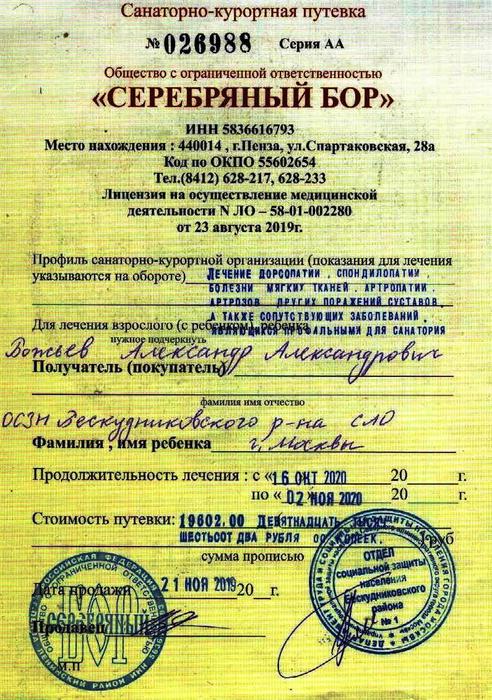 Санаторно-курортная путевка
№ 026988 Серия АА
Общество с ограниченной ответственностью
«СЕРЕБРЯНЫЙ БОР»
ИНН 5836616793
Место нахождения : 440014 , г.Пенза, ул.Спартаковская, 28а
Код по ОКПО 55602654
Тел.(8412) 628-217, 628-233
Лицензия на осуществление медицинской
деятельности N ЛО – 58-01-002280
от 23 августа 2019г.
Профиль санаторно-курортной организации (показания для лечения
указываются на обороте) Лечение дорсопатии, спондилопатии,
болезни мягких тканей, артропатии
артрозов, других поражений суставов,
а также сопутствующих заболеваний,
Для лечения взрослого (с ребенком), ребенка являющихся профильными для санатория
нужное подчеркнуть
Божьев Александр Александрович
Получатель (покупатель)
фамилия имя отчество
ОСЗН Бескудниковского р-на СЛО
Фамилия , имя ребенка г. Москвы
Продолжительность лечения : с « 16 ОКТ 2020 20 г.
по « 02 НОЯ 2020 20 г.
Стоимость путевки: 19602.00 Девятнадцать тысяч
шестьсот два рубля 00 копеек. руб
сумма прописью
Дата продажи 21 НОЯ 2019 20 г.
Продавец
М.П
ОТДЕЛ
социальной защиты
населения
Бескудниковского
района
№ 1